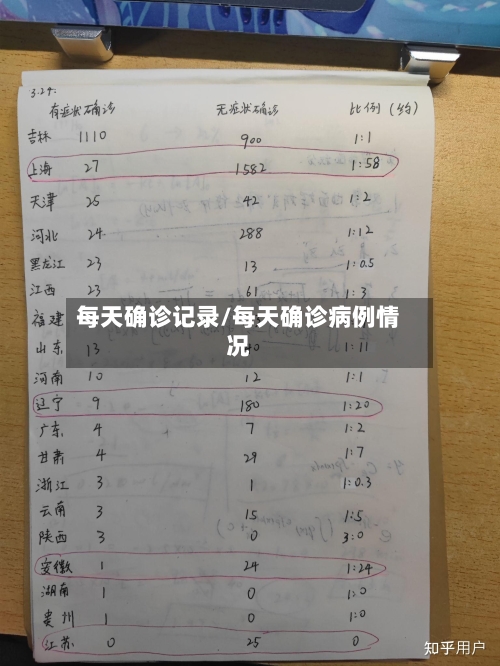 3.24.
有症状确诊 无症状确诊 比例（约）
吉林 1110 900 1:1
上海 27 1582 1:58
天津 25 42 1:2
河北 24 288 1:12
黑龙江 23 13 1:0.5
江西 23 61 1:3
福建
每天确诊记录/每天确诊病例情
况
山东 13 1:11
河南 10 12 1:1
辽宁 9 180 1:20
广东 4 7 1:2
甘肃 4 29 1:7
浙江 3 1 1:0.3
云南 3 15 1:5
陕西 3 0 3:0
安徽 1 24 1:24
湖南 1 0 1:0
贵州 1 0 1:0
江苏 0 25 0
知乎用户